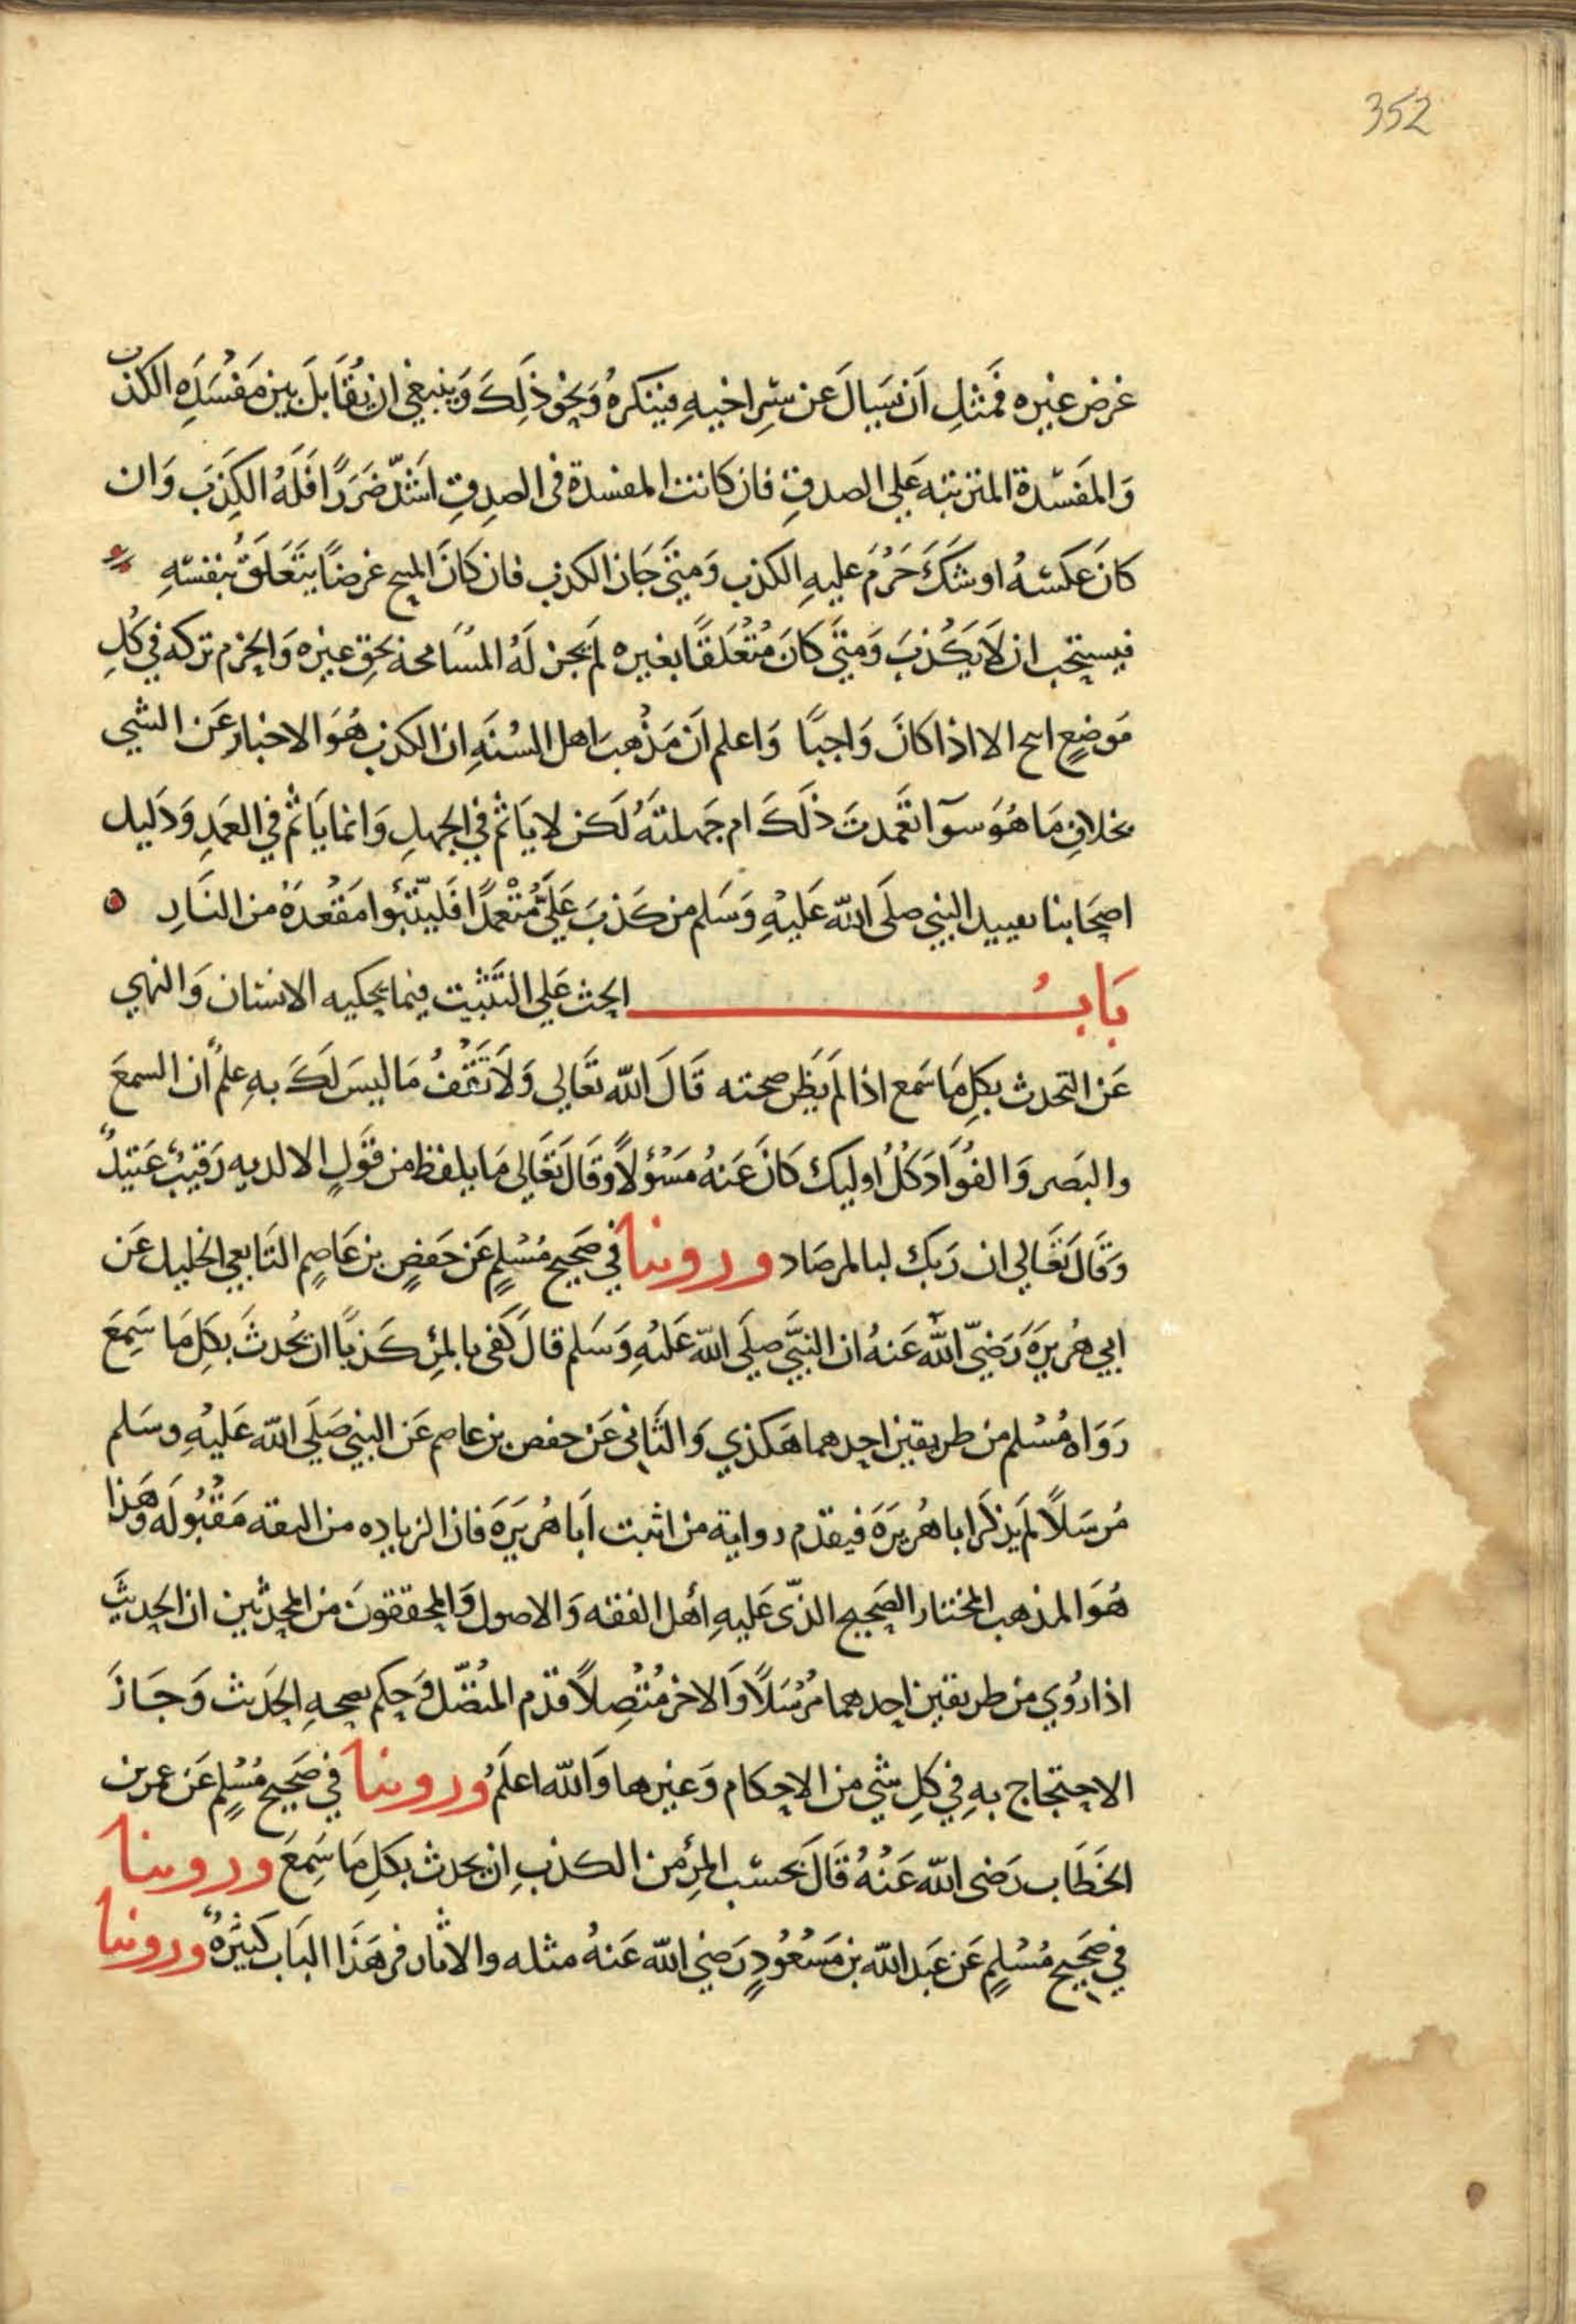 352
غرض غيره فَمثلِ اَن يَسيالَ عن سِّرِ اخيهِ فينكرهُ وَنحوَ ذٰلِكَ وَينبغي ان يُقَابلَ بين مَفسَدَهِ الكذب
وَالمَفسّدة المترتبه عَلي الصدقِ فان كانت المفسدة في الصِدقِ اشَدّ ضَرَرًا فَلَهُ الكِذبَ وَان
كانَ عَكسَهُ او شَكَ حَرُمَ عليهِ الكذب وَمتَي جَاز الكذب فان كانَ المبيح غرضاً يتَعَلَقُ بنفسّهِ
فيستحب ان لاَ يَكْذبَ وَمتَي كانَ مُتعَلقًا بغيره لم يجز لَهُ المسَامحة بحق غيره وَالحزم تركه في كُلِ
مَوضعٍ ابيح الا اذا كانَ وَاجبًا وَاعلم اَن مَذْهب اهل السُنَهِ ان الكذب هُوَ الاخبار عَن الشي
بخلافِ مَا هُوَ سوَآ تعَمدتَ ذلَكَ ام جَهلتَهُ لَكن لا يَاثم في الجهلِ وَانما يَاثم في العَمدِ وَدَليل
اصحَابنا تقييد النبي صلَي اللّه عَليهِ وَسَلم من كَذبَ عَلَيَّ مُتعْمدًا فَليتّبَوا مَقْعدَهُ من النَارِ
بَابُ الحث عَلي التَثبِيت فيما يحكيه الانسَان وَالنهي
عَن التحدث بكلِ مَا سَمع اذا لم يَظن صحته قَالَ اللّه تعَالي وَلاَ تَقفُ مَا ليسَ لَكَ بهِ علمٌ ان السمعَ
والبَصر وَالفؤادَ كلُ اوليك كانَ عَنهُ مَسْؤلاً وَقالَ تعَالي مَا يلفظ من قَولٍ الا لديه رَقيبٌ عَتيدٌ
وَقَالَ تَعَالي ان رَبك لبالمرصَاد وروينا في صَحيحِ مُسْلمٍ عَن حَفصٍ بن عَاصِمٍ التَابعي الجليل عَن
ابي هُريرَةَ رَضيّ اللّٰه عَنهُ ان النبَّي صلَي اللّه عَليْهِ وَسَلم قالَ كَفى بالمرْءِ كَذباً ان يُحدثَ بكَلِ مَا سَمِعَ
رَوَاهُ مُسْلم من طريقين احدهما هَكذي وَالثَاني عَن حفص بن عاصم عَن النبي صَلَي اللّه عَليْهِ وسَلم
مُرسَلاً لم يَذكر ابا هُريرَةَ فيقدم رواية من اثبت اَبَا هُريرَةَ فان الزياده من الثقه مَقْبُولَه وَهَذا
هُوَ المذهب المختار الصَحيح الذّى عَليهِ أهل الفقه وَالاصول وَالمحققونَ من المحدثين ان الحديثَ
اذا رُوي من طريقين احدهما مُرْسَلاً وَالاخر مُتصِلاً قدم المُتصّل وَحكم بصحهِ الحَديث وَجَازَ
الاحتجاج بهِ في كلِ شي من الاحكام وَغيرها وَاللّه اعلَمُ وروينا في صَحيحِ مُسْلمٍ عَن عُمر بن
الخَطَاب رَضى اللّه عَنْهُ قَالَ بحسَب المرءِ من الكذبِ ان يحدث بكلِ مَا سَمِعَ وروينا
في صَحيحِ مُسْلمٍ عَن عَبَد اللّه بن مَسْعُودٍ رَضيَ اللّه عَنهُ مثله والاثار في هَذَا البَاب كَثيرَهٌ وروينا